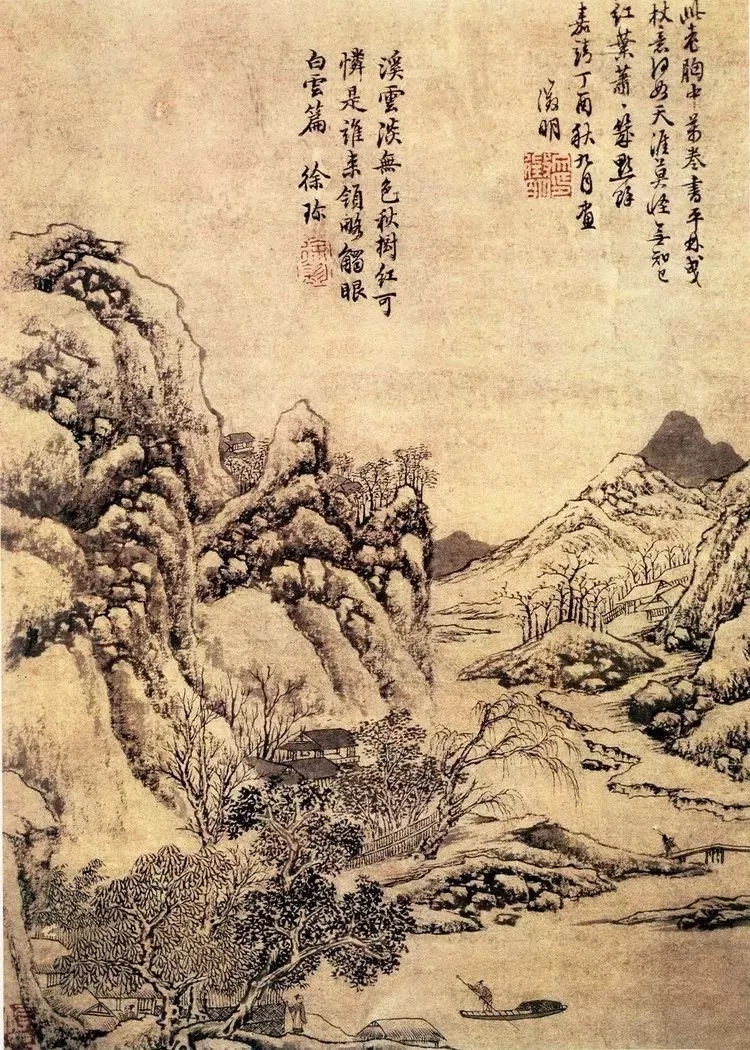 此老胸中萬卷書平林曳
杖意何如天涯莫怪無知己
紅葉蕭〻幾點
嘉靖丁酉秋九月畫
徵明
溪雲淡無色秋樹紅可
憐是誰来領略觸眼
白雲篇 徐珎